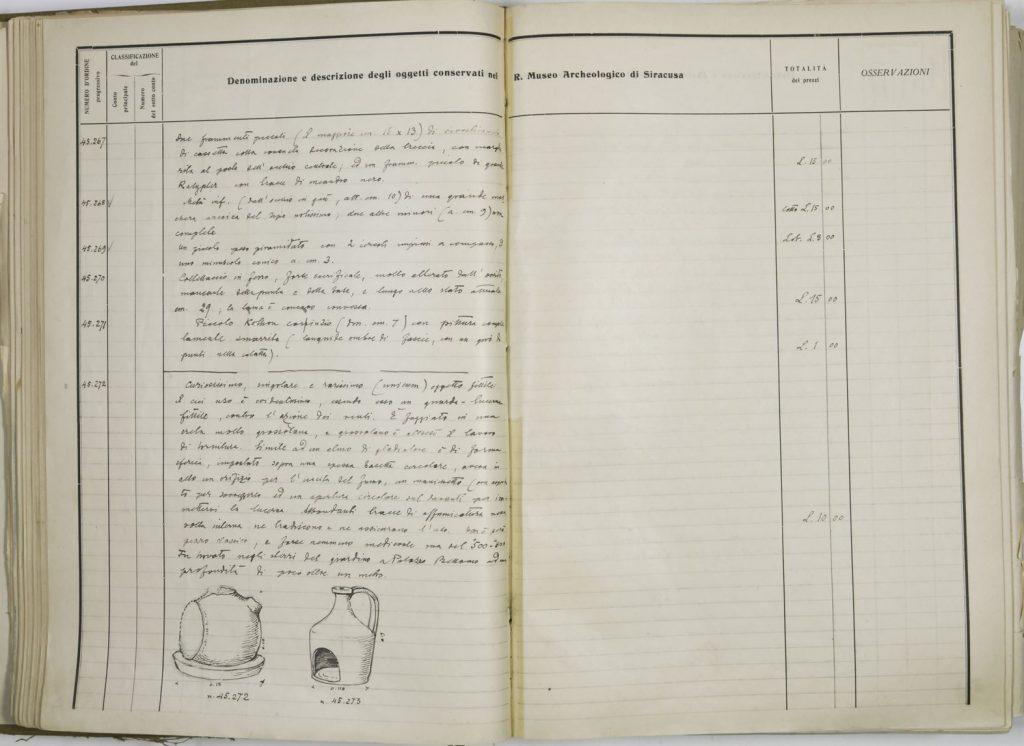 NUMERO D'ORDINE progressivo
CLASSIFICAZIONE del
Conto principale
Numero del sotto conto
Denominazione e descrizione degli oggetti conservati nel R. Museo Archeologico di Siracusa
TOTALITÀ dei prezzi
OSSERVAZIONI
45.267
due frammenti piccoli (il maggiore cm. 15 x 13) di
di cassetta colla consueta decorazione della treccia, con
al polo dell' occhio centrale; ed un framm. piccolo di grande
con tracce di meandro nero.
L. 15 00
45.268 √
Metà inf. (dall' occhio in giù, alt. cm. 10) di una grande
arcaica del tipo notissimo; due altre minori (a. cm. 9)
complete
L. 15 00
45.269 √
un piccolo peso piramidato con 2 circoli impressi a compasso, e
uno minuscolo conico a. cm. 3.
L. 3 00
45.270
Coltellaccio in ferro, forse sacrificale, molto alterato dall'
mancante della punta e della base, e lungo allo stato attuale
cm. 29; la lama è
L. 15 00
45.271
Piccolo Kothon corinzio (dm. cm. 7) con pittura
smarrita (languide ombre di fascie, con un giro di
punti nella
L. 1 00
45.272
Curiosissimo, singolare e rarissimo (unicum) oggetto fittile
il cui uso è evidentissimo, essendo esso un guarda-lucerna
fittile, contro l'azione dei venti. È foggiato in una
creta molto grossolana, e grossolano è altresì il lavoro
di tornitura. Simile ad un elmo di gladiatore è di forma
sferica, impostato sopra una spessa bacchetta circolare, ancora in
alto un orifizio per l'uscita del fumo, un manichetto
per sorreggerlo ed un apertura circolare sul davanti per
mettervi la lucerna. Abbondanti tracce di affumicatura nella
volta interna ne tradiscono e ne assicurano l'uso. Non è
pezzo classico, e forse nemmeno medievale ma del 500-600
Fu trovato negli sterri del giardino a Palazzo
profondità di poco oltre un metro.
L. 10 00
n. 45.272
n. 45.273